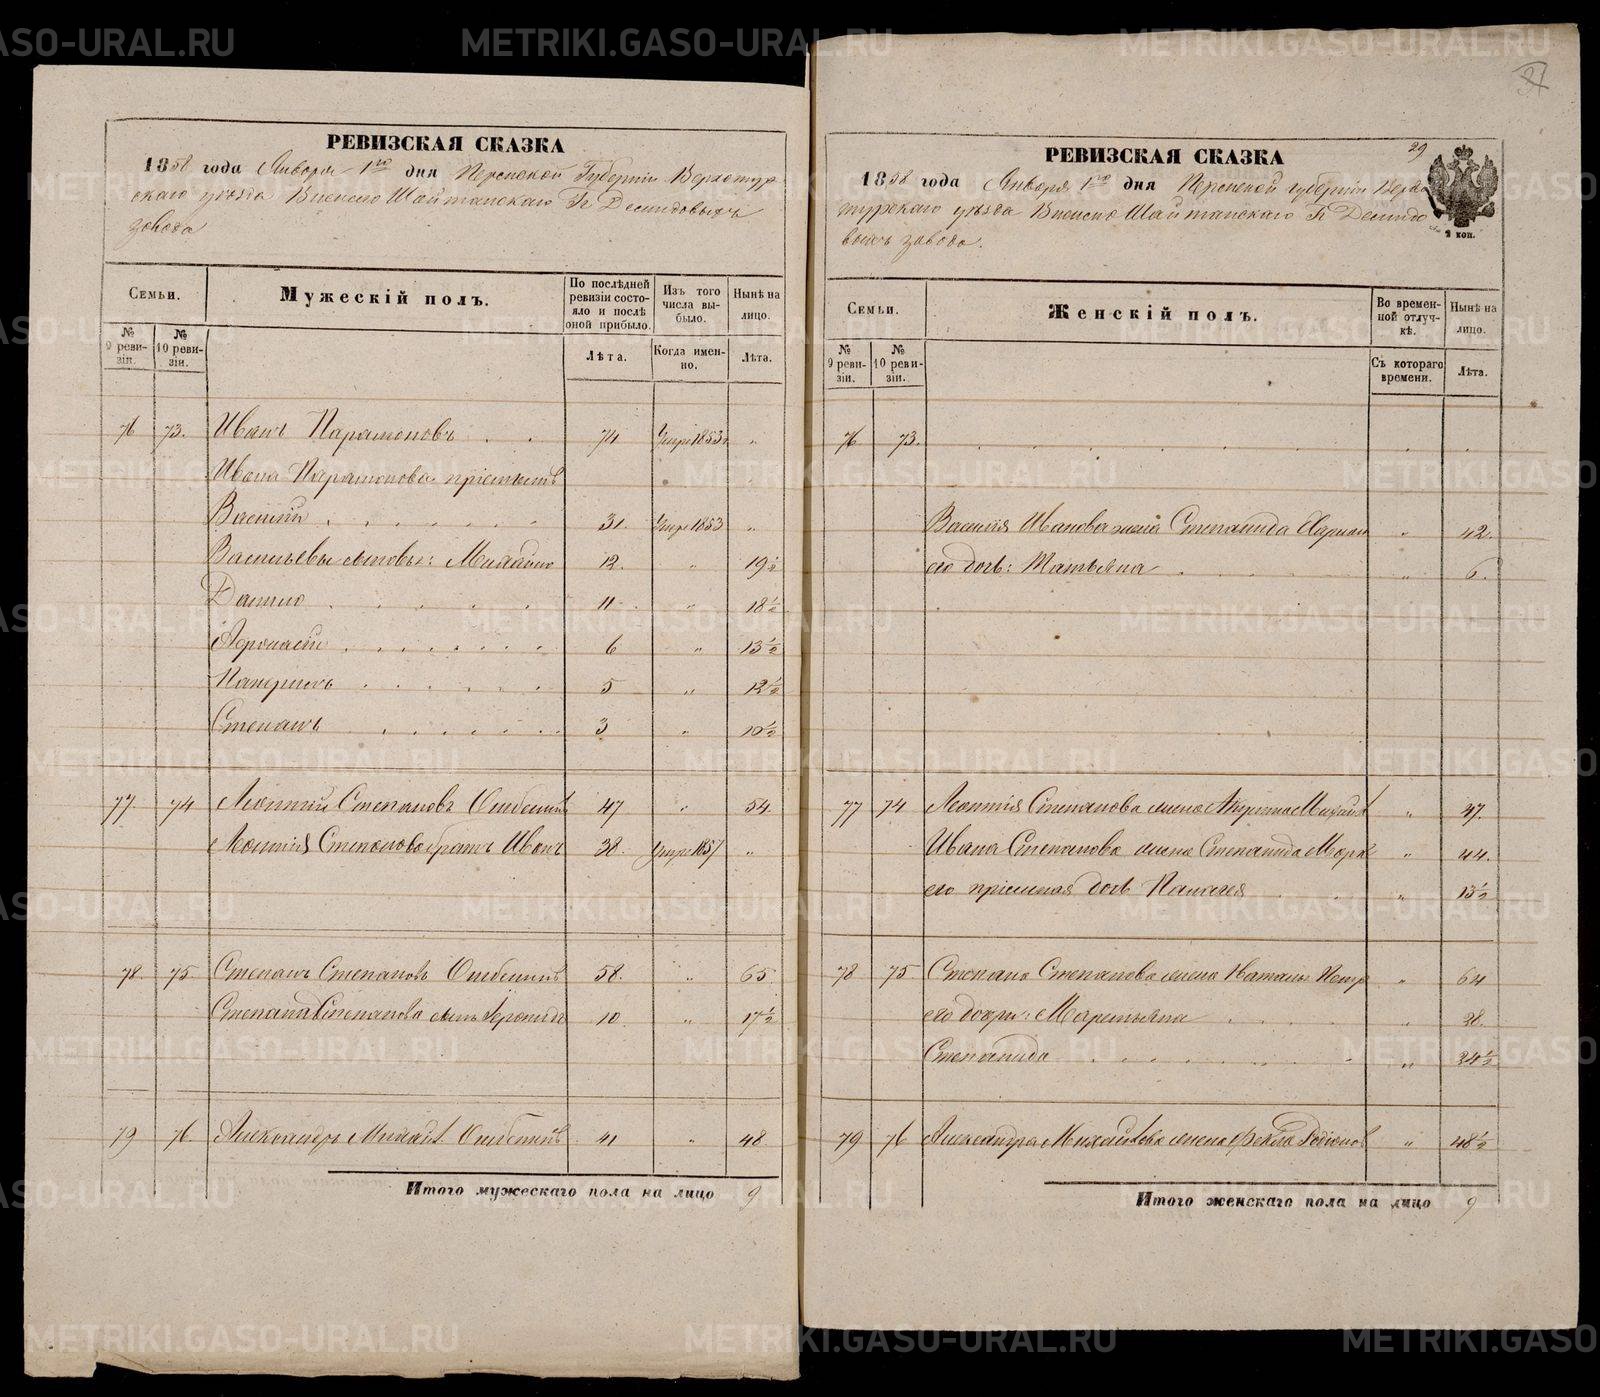 РЕВИЗСКАЯ СКАЗКА
1858 года Января 1го дня Пермской Губернiи Верхотур
скаго уѣзда Висимо Шайтанскаго Гг Демидовыхъ
завода
Семьи.
Мужескiй полъ.
По послѣдней ревизiи состояло и послѣ оной прибыло.
Изъ того числа выбыло.
Нынѣ на лицо.
№ 9 ревизiи.
№ 10 ревизiи.
Лѣта.
Когда именно.
Лѣта.
76 73. Иванъ Парамоновъ . . 74 Умре 1853 "
Ивана Парамонова прiемышъ
Василiй . . . . . . 31. Умре 1853 "
Васильевы сыновья: Михайло 12. " 19½
Данило . . . . . . 11 " 18½
Афонасiй . . . . . . 6 " 13½
. . . . . 5 " 12½
Степанъ . . . . . . 3 " 10½
77 74 Леонтiй Степановъ 47 " 54
Леонтiя Степанова братъ Иванъ 38. Умре 1857 "
78. 75 Степанъ Степановъ 58. " 65
Степана Степанова сынъ 10. " 17½
79 76 Александръ Михайл. 41 " 48
Итого мужескаго пола на лицо 9
РЕВИЗСКАЯ СКАЗКА
29
1858 года Января 1го дня Пермской губернiи Верхо
турскаго уѣзда Висимо Шайтанскаго Гг Демидо
выхъ завода.
2 коп.
Семьи.
Женскiй полъ.
Во временной отлучкѣ.
Нынѣ на лицо.
№ 9 ревизiи.
№ 10 ревизiи.
Съ котораго времени.
Лѣта.
76 73.
Василiя Иванова жена Степанида " 42.
его дочь: Татьяна . . . . " 6.
77 74 Леонтiя Степанова жена Михайл " 47.
Ивана Степанова жена Степанида Марк " 44.
его прiемная дочь Пелагея " 13½
78 75 Степана Степанова жена Наталья Петр " 64
его дочри: Мареmьяна . . . . " 28.
Степанида . . . . . . " 24½
79 76 Александра Михайлова жена Фекла Родiонов " 48½
Итого женскаго пола на лицо 9
METRIKI.GASO-URAL.RU